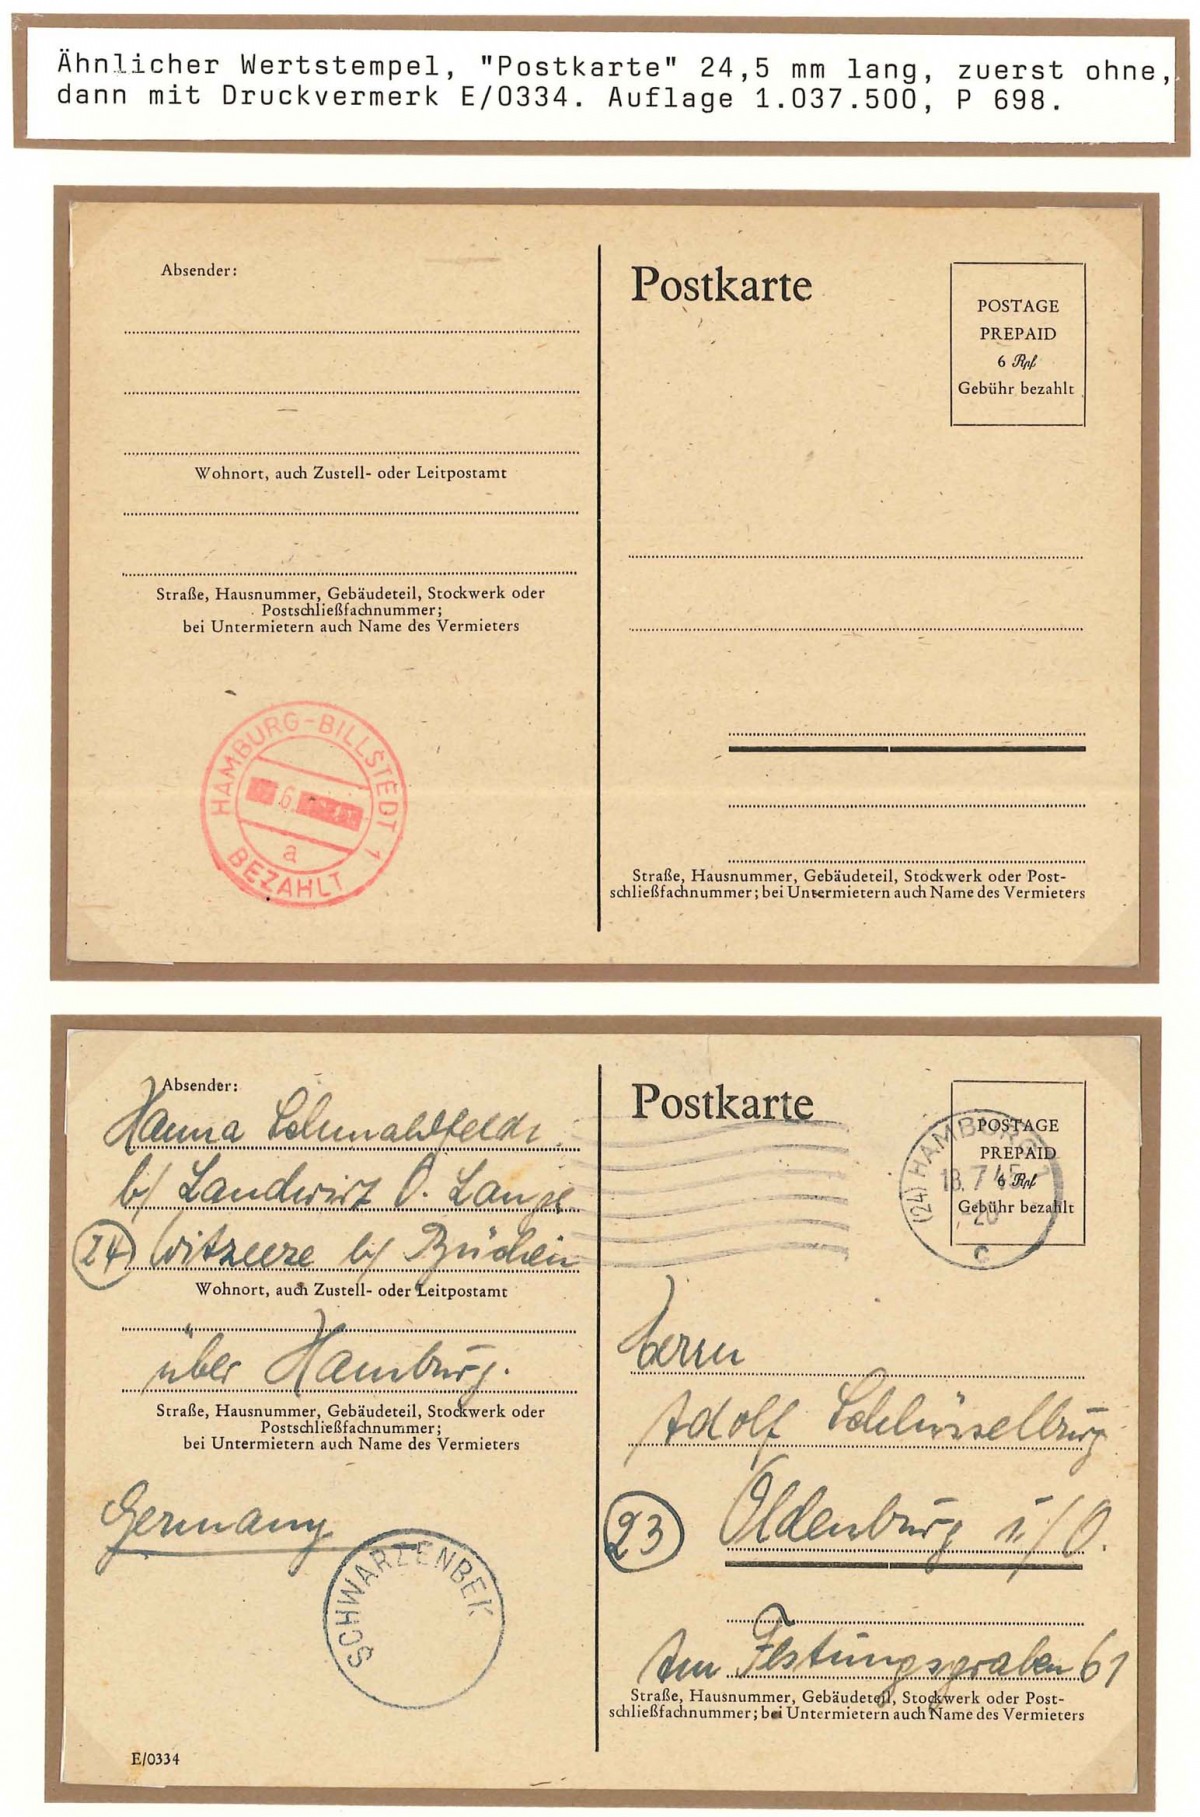 Ähnlicher Wertstempel, "Postkarte" 24,5 mm lang, zuerst ohne,
dann mit Druckvermerk E/0334. Auflage 1.037.500, P 698.
Absender:
Wohnort, auch Zustell- oder Leitpostamt
Straße, Hausnummer, Gebäudeteil, Stockwerk oder
Postschließfachnummer;
bei Untermietern auch Name des Vermieters
HAMBURG-BILLSTEDT 1
6.
a
BEZAHLT
Postkarte
POSTAGE
PREPAID
6 Rpf
Gebühr bezahlt
Straße, Hausnummer, Gebäudeteil, Stockwerk oder Post-
schließfachnummer; bei Untermietern auch Name des Vermieters
Absender:
Hanna Schmahlfeldt
b/ Landwirt O. Lange
24 Witzeeze b/ Büchen
Wohnort, auch Zustell- oder Leitpostamt
über Hamburg.
Straße, Hausnummer, Gebäudeteil, Stockwerk oder
Postschließfachnummer;
bei Untermietern auch Name des Vermieters
Germany
SCHWARZENBEK
E/0334
Postkarte
POSTAGE
PREPAID
6 Rpf
Gebühr bezahlt
(24) HAMBURG 1
18.7.45
-20
c
Herrn
Adolf Schlüsselburg
23 Oldenburg i/O.
Am Festungsgraben 61
Straße, Hausnummer, Gebäudeteil, Stockwerk oder Post-
schließfachnummer; bei Untermietern auch Name des Vermieters